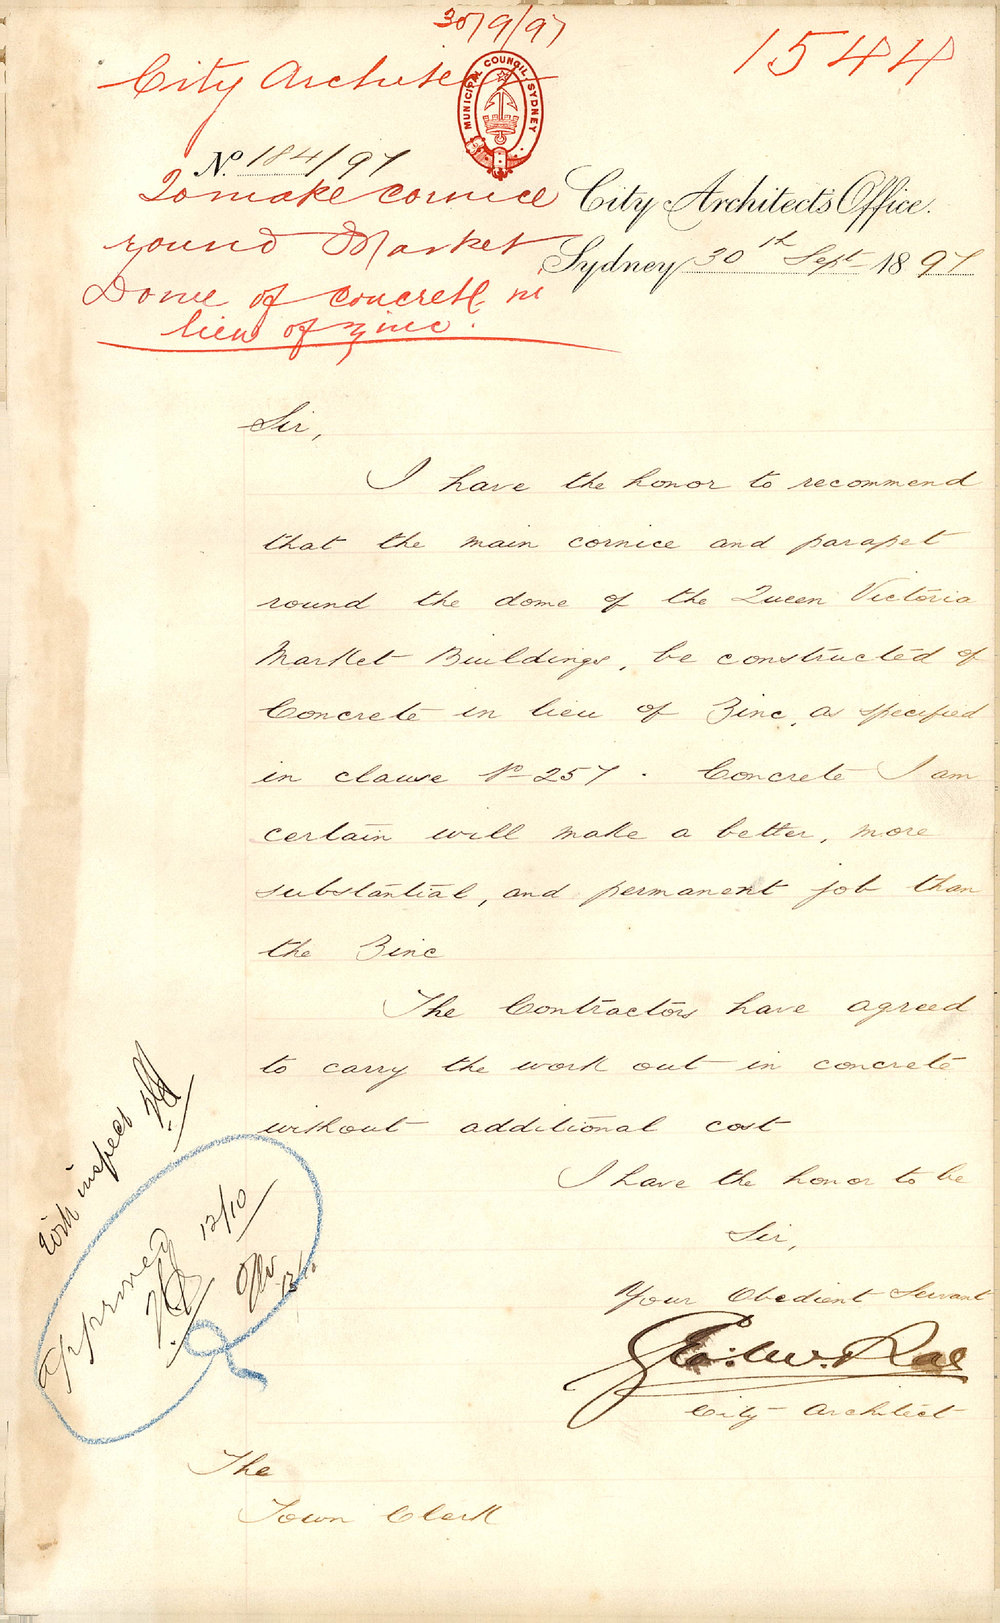 30/9/97
1544
City Architect
MUNICIPAL COUNCIL SYDNEY
No. 184/97
To make cornice
round Market
Dome of concrete in
lieu of zinc.
City Architect's Office.
Sydney 30th Sept 1897
Sir,
I have the honor to recommend
that the main cornice and parapet
round the dome of the Queen Victoria
Market Buildings, be constructed of
Concrete in lieu of Zinc, as specified
in clause No 257. Concrete I am
certain will make a better, more
substantial, and permanent job than
the Zinc
The Contractors have agreed
to carry the work out in concrete
without additional cost
I have the honor to be
Sir,
Your Obedient Servant
Geo: W. Rae
City Architect
inspect
Approved
12/10
The
Town Clerk